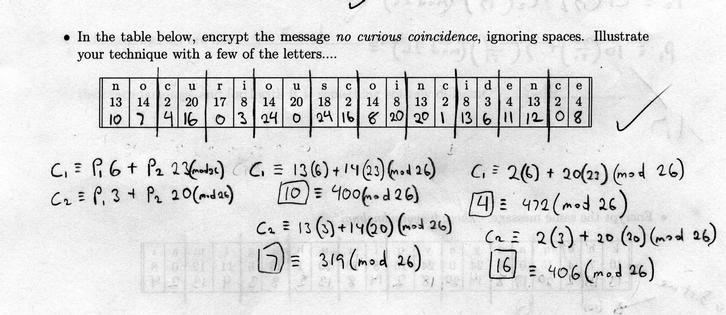 • In the table below, encrypt the message no curious coincidence, ignoring spaces. Illustrate
your technique with a few of the letters....
n o c u r i o u s c o i n c i d e n c e
13 14 2 20 17 8 14 20 18 2 14 8 13 2 8 3 4 13 2 4
10 7 4 16 0 3 24 0 24 16 8 20 20 1 13 6 11 12 0 8
C₁ ≡ P₁ 6 + P₂ 23 (mod 26)
C₂ ≡ P₁ 3 + P₂ 20 (mod 26)
C₁ ≡ 13(6)+14(23)(mod 26)
10 ≡ 400(mod 26)
C₂ ≡ 13(3)+14(20)(mod 26)
7 ≡ 319 (mod 26)
C₁ ≡ 2(6) + 20(23)(mod 26)
4 ≡ 472 (mod 26)
C₂ ≡ 2(3) + 20 (20)(mod 26)
16 ≡ 406 (mod 26)